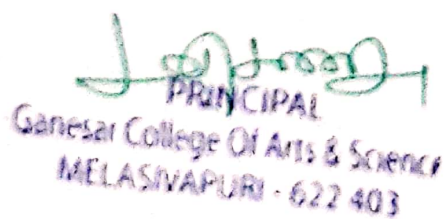 PRINCIPAL
Ganesar College Of Arts & Science
MELASIVAPURI - 622 403